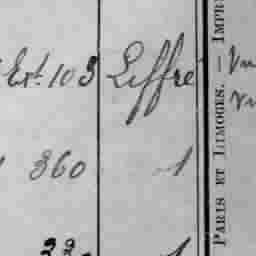 Ext. 103 Liffré
360 1
PARIS ET LIMOGES. IMPR